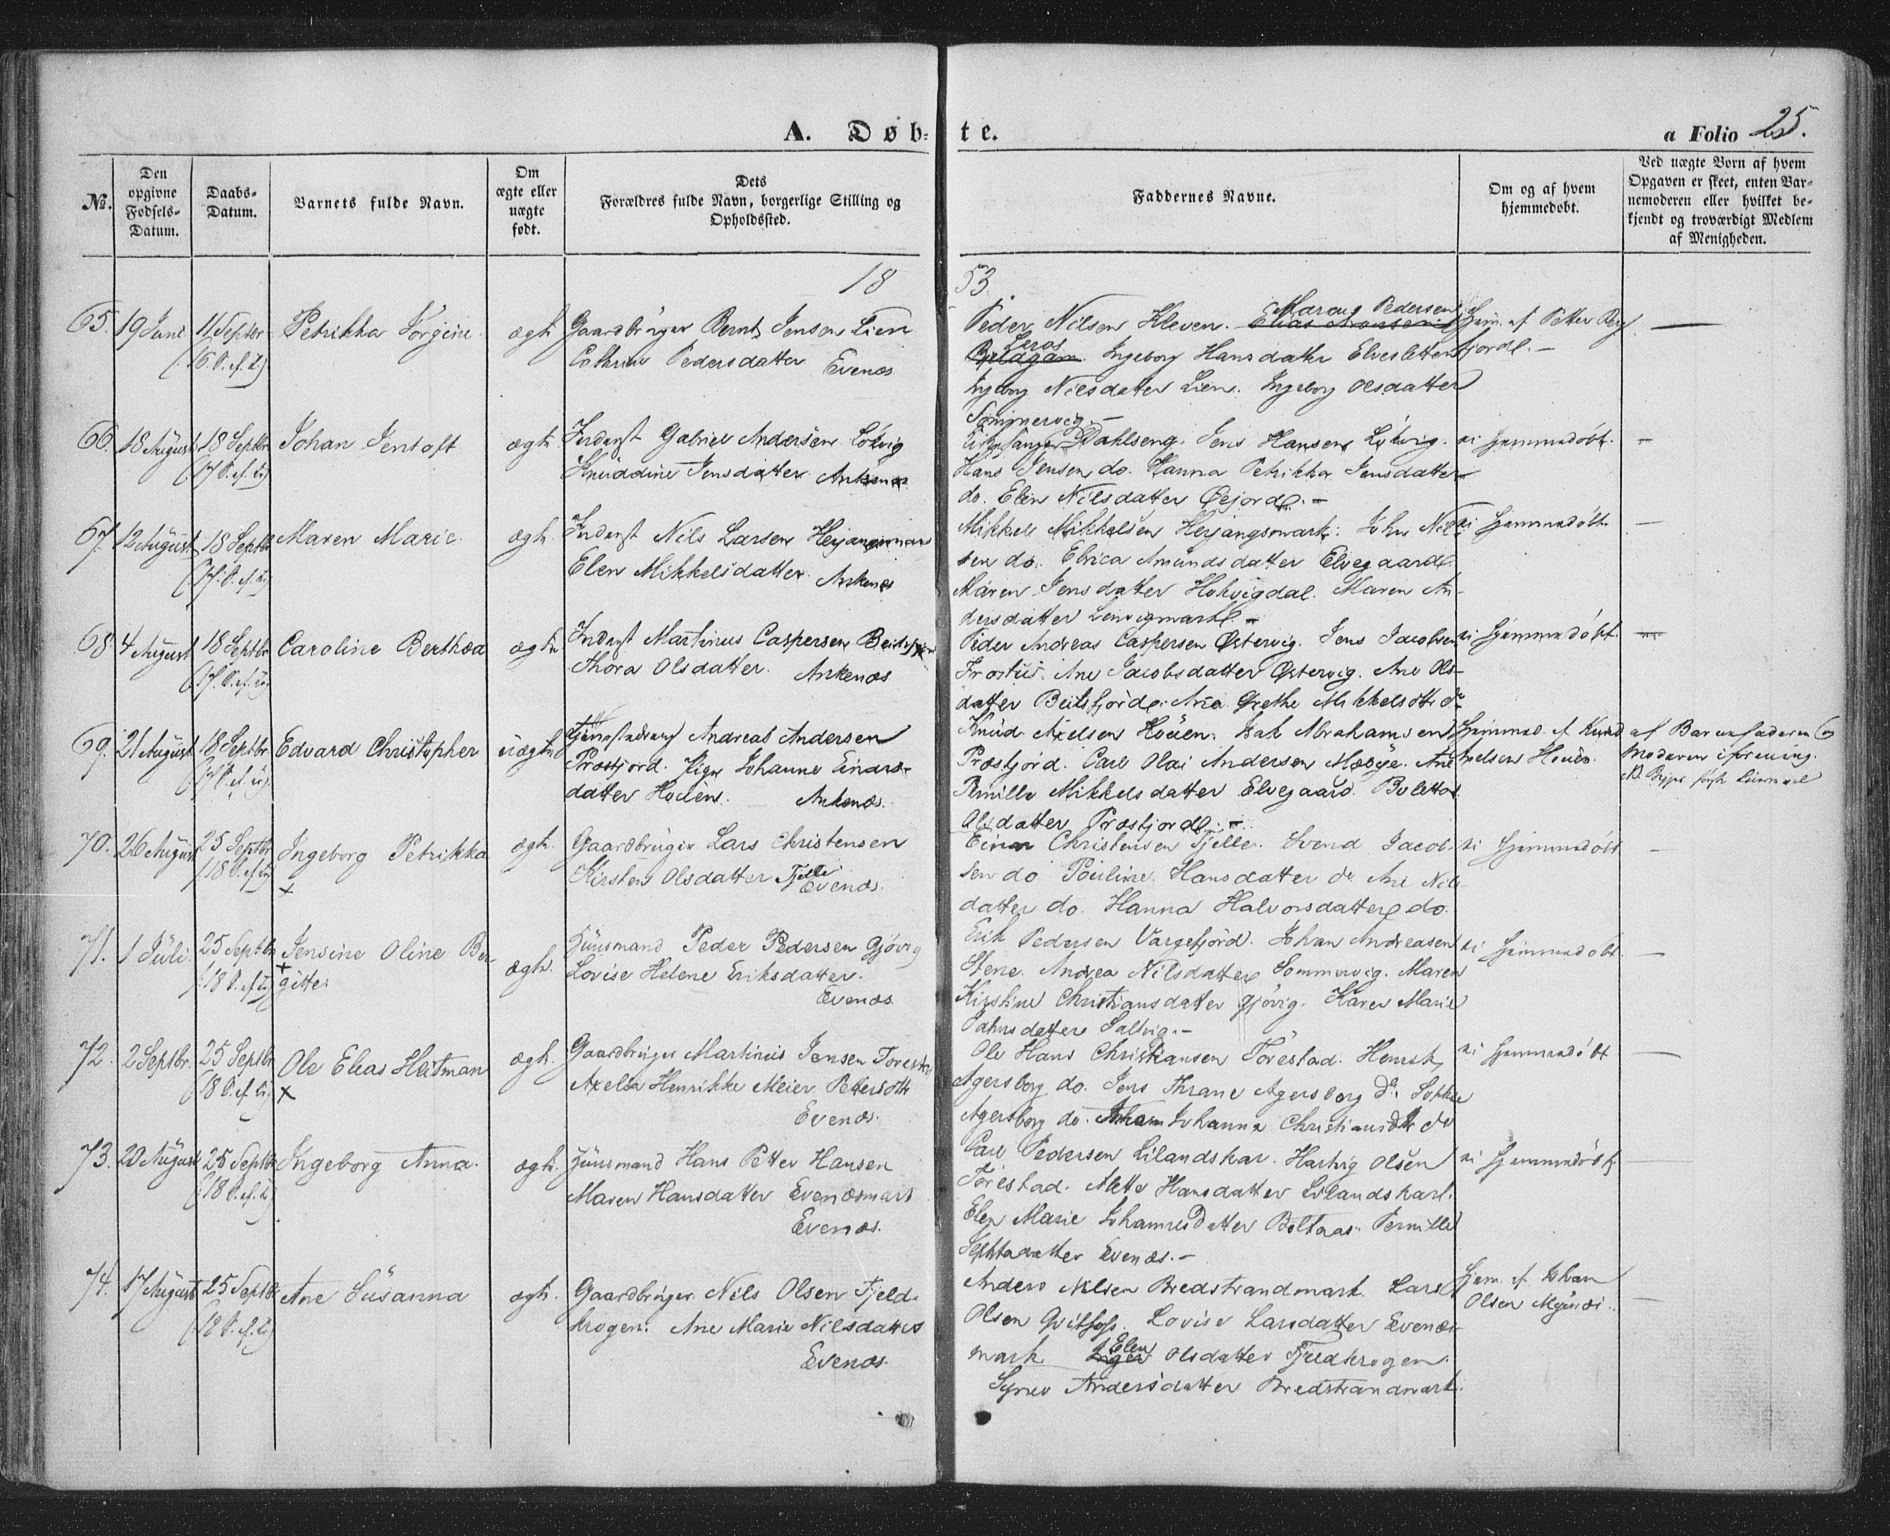 A. Døb-
te.
a Folio 25.
No.
Den opgivne Fødsels-Datum.
Daabs-Datum.
Barnets fulde Navn.
Om ægte eller uægte født.
Dets Forældres fulde Navn, borgerlige Stilling og Opholdssted.
Faddernes Navne.
Om og af hvem hjemmedøbt.
Ved uægte Børn af hvem Opgaven er skeet, enten Barnemoderen eller hvilket bekjendt og troværdigt Medlem af Menigheden.
18
53.
65. 19 Juni 11 Septbr Petrikka Jörgine ægte Gaardbrüger Bernt Jensen Lien
Cathrine Pedersdatter Evenæs
Peder Nilsen Kleven. Marcus Pedersen
Leros Ingeborg Hansdatter Elvesletten
Ingborg Nilsdatter Lien. Ingeborg Olsdatter
Sommervig.-
Hjem. af Petter Berg
fjord.-
66. 18 August 18 Septbr Johan Jentoft ægte Inderst Gabriel Andersen Lövig
(17 S. ef. Tr.) Knüddine Jensdatter Ankenæs
Kirkesanger Dahlseng. Jens Hansen Lövig.
Hans Jensen do. Hanna Petrikka Jensdatter
do. Elen Nilsdatter Øejord.-
ei Hjemmedöbt.
67. 12 August 18 Septbr Maren Marie ægte Inderst Nils Larsen Herjangsmark
(17 S. ef. Tr.) Elen Mikkelsdatter. Ankenæs
Mikkel Mikkelsen Herjangsmark. John Nil-
sen do. Elrica Amundsdatter Elvegaard.
Maren Jensdatter Holvigdal. Maren An-
dersdatter Lenvigmark.-
ei Hjemmedöbt.
68. 4 August 18 Septbr Caroline Berthea ægte Inderst Martinus Caspersen Beitsfjord
(17 S. ef. Tr.) Thora Olsdatter. Ankenæs
Peder Andreas Caspersen Østervig. Jens Jacobsen
Frostüs. Ane Jacobsdatter Østervig. Ane Ols-
datter Beitsfjord. Ana Grethe Mikkelsdtt do
ei Hjemmedöbt.
69. 21 August 18 Septbr Edvard Christopher üægte Andreas Andersen
(17 S. ef. Tr.) Præstfjord. Pige Johanne Einars-
datter Hoüen. Ankenæs.
Knüd Axelsen Hoüen. Isak Abrahamsen
Præstfjord. Carl Olai Andersen Mæbye. Ane
Pernille Mikkelsdatter Elvegaard. Bolettes
Olsdatter Præstfjord.-
Hjemmed. af Knud
Axelsen Hoüen.
af Barnefaderen og
Moderen i forening.
70. 26 August 25 Septbr Ingeborg Petrikka ægte Gaardbrüger Lars Christensen
(18 S. ef. Tr.) + Kirsten Olsdatter Fjelle
Evenæs.
Einar Christensen Fjelle. Svend Jacob-
sen do Pauline Hansdatter do Ane Nils-
datter do. Hanna Halvorsdatter do.
ei Hjemmedöbt
71. 1 Juli 25 Septbr Jensine Oline Ber-
(18 S. ef. Tr.) + gitte ægte Hüüsmand Peder Pedersen Gjövig
Lovise Helene Eriksdatter.
Evenæs
Erik Pedersen Vargefjord. Johan Andreasen
Stene. Andrea Nilsdatter Sommervig. Maren
Kirstine Christiansdatter Gjövig. Karen Marie
datter Saltvig.-
ei Hjemmedöbt.
72. 2 Septbr. 25 Septbr Ole Elias Heitman ægte Gaardbrüger Martinüs Jensen Forestad
(18 S. ef. Tr.) + Axelia Henrikke Meier Petersdtt
Evenæs.
Ole Hans Christiansen Forestad. Henrik
Agersborg do. Jens Thrane Agersborg do. Sophie
Agersborg do. Johanna Christiansdtr do
ei Hjemmedöbt
73. 20 August 25 Septbr Ingeborg Anna. ægte Hüüsmand Hans Petter Hansen
(18 S. ef. Tr.) Maren Hansdatter Evenæsmark
Evenæs.
Carl Pedersen Lilandskar. Hartvig Olsen
Forestad. Mette Hansdatter Lilandskar.
Elen Marie Johannesdatter Boltaas. Pernille
datter Evenæs.-
ei Hjemmedöbt
74. 17 August 25 Septbr Ane Süsanna ægte Gaardbrüger Nils Olsen Fjeld-
(18 S. ef. Tr.) krogen. Ane Marie Nilsdatter
Evenæs.
Anders Nilsen Bredstrandmark. Lars
Olsen Qvitfors. Lovise Larsdatter Evenæs-
mark Elen Olsdatter Fjeldkrogen.
Synev Andersdatter Bredstrandmark.
Hjem. af Johan
Olsen